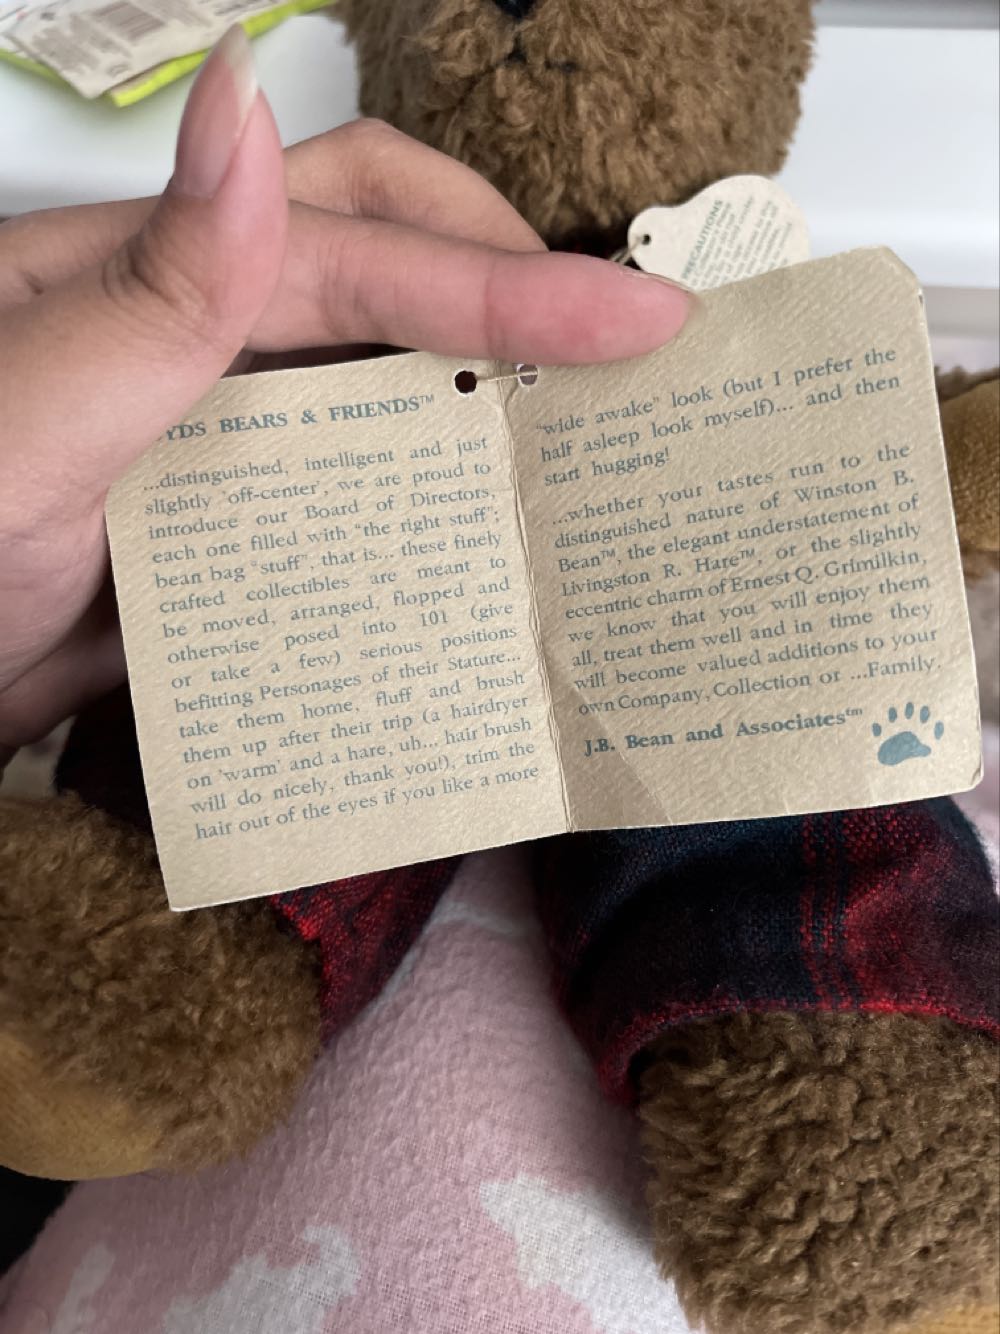 YDS BEARS & FRIENDS™
...distinguished, intelligent and just
slightly 'off-center', we are proud to
introduce our Board of Directors,
each one filled with "the right stuff";
bean bag "stuff", that is... these finely
crafted collectibles are meant to
be moved, arranged, flopped and
otherwise posed into 101 (give
or take a few) serious positions
befitting Personages of their Stature...
take them home, fluff and brush
them up after their trip (a hairdryer
on 'warm' and a hare, uh... hair brush
will do nicely, thank you!), trim the
hair out of the eyes if you like a more
"wide awake" look (but I prefer the
half asleep look myself)... and then
start hugging!
...whether your tastes run to the
distinguished nature of Winston B.
Bean™, the elegant understatement of
Livingston R. Hare™, or the slightly
eccentric charm of Ernest Q. Grimilkin,
we know that you will enjoy them
all, treat them well and in time they
will become valued additions to your
own Company, Collection or ...Family.
J.B. Bean and Associates™
PRECAUTIONS